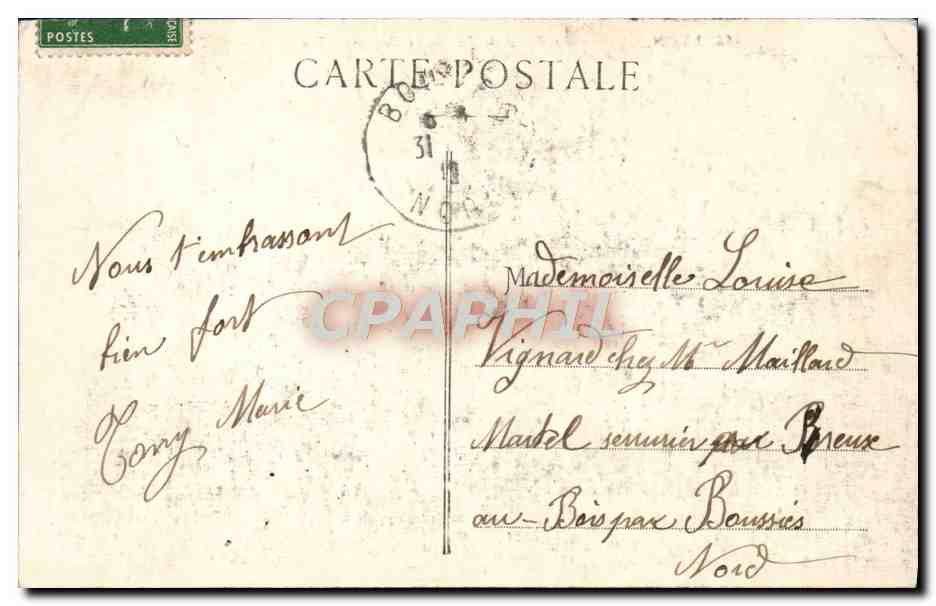 POSTES
CARTE POSTALE
31
NOR
Nous t'embrassont
bien fort
Tony Marie
CPAPHIL
Mademoiselle Louise
Vignard chez Mr Maillard
Martel serrurier par
au-Bois par Boussies
Nord